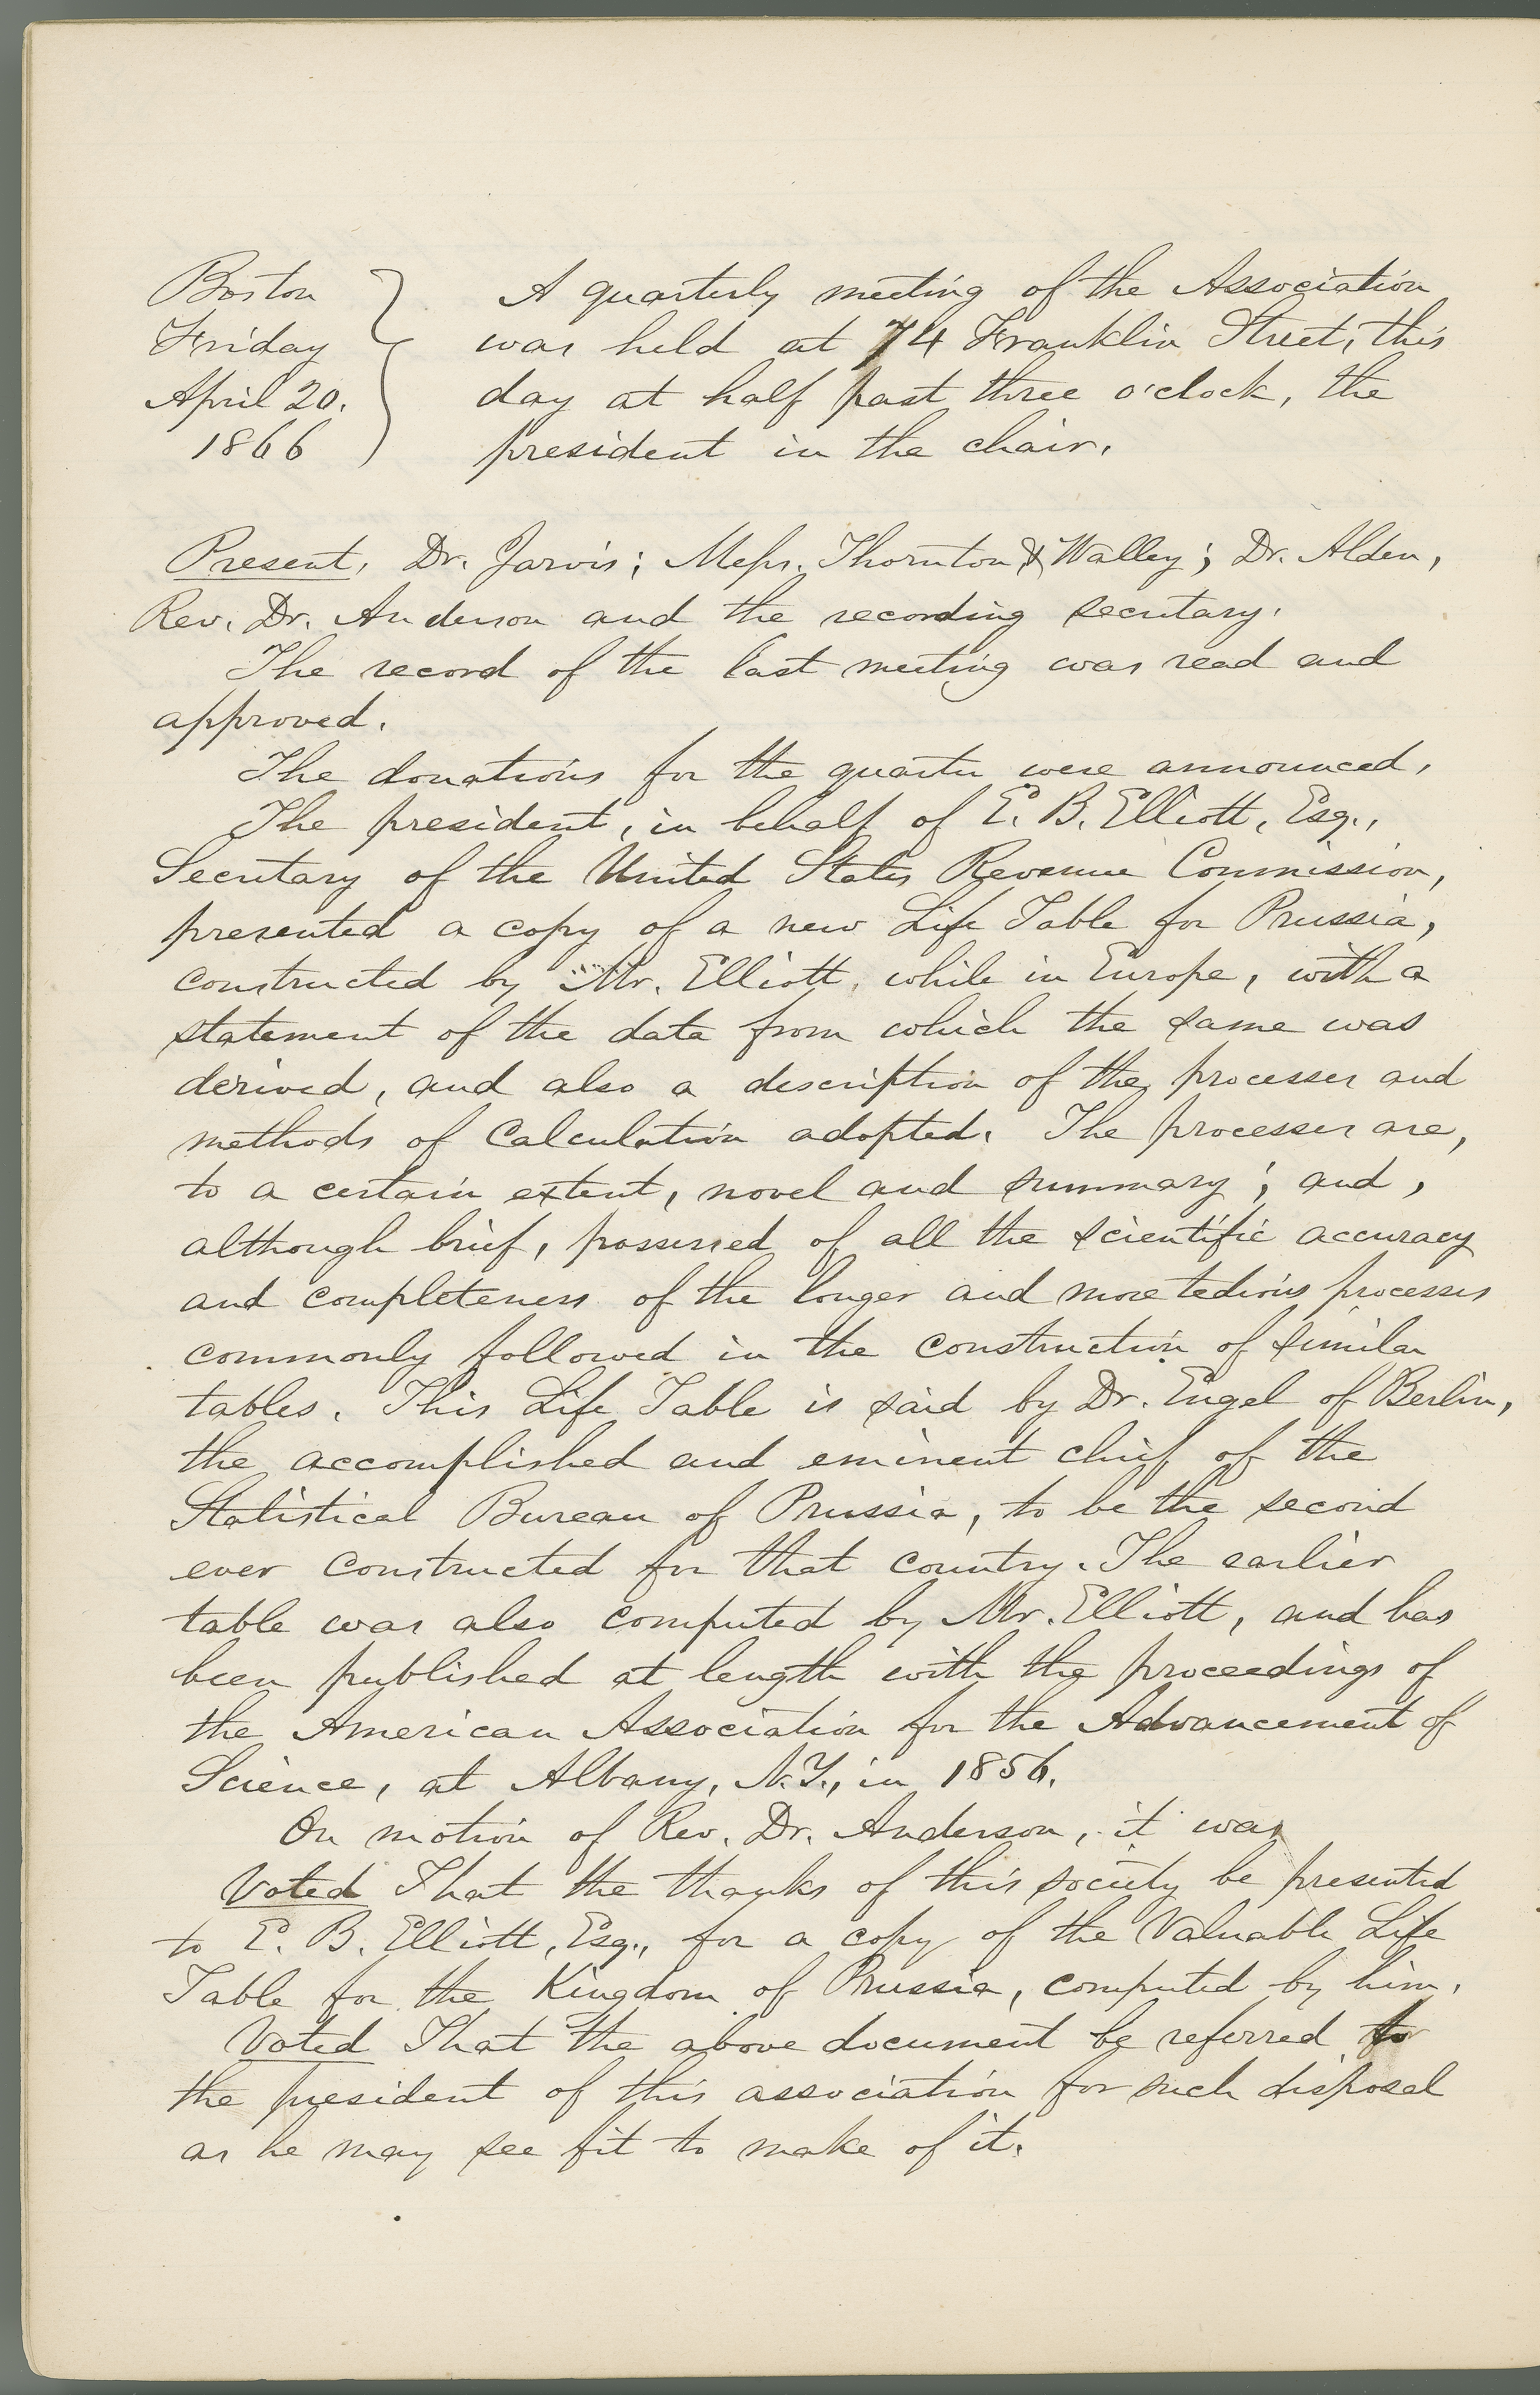 Boston
Friday
April 20.
1866
A quarterly meeting of the Association
was held at 74 Franklin Street, this
day at half past three o'clock, the
president in the chair.
Present, Dr. Jarvis; Messrs. Thornton & Walley; Dr. Alden,
Rev. Dr. Anderson and the recording secretary.
The record of the last meeting was read and
approved.
The donations for the quarter were announced.
The president, in behalf of E. B. Elliott, Esq.,
Secretary of the United States Revenue Commission,
presented a copy of a new Life Table for Prussia,
constructed by Mr. Elliott, while in Europe, with a
statement of the data from which the same was
derived, and also a description of the processes and
methods of Calculation adopted. The processes are,
to a certain extent, novel and summary; and,
although brief, possessed of all the scientific accuracy
and completeness of the longer and more tedious processes
commonly followed in the construction of similar
tables. This Life Table is said by Dr. Engel of Berlin,
the accomplished and eminent chief of the
Statistical Bureau of Prussia, to be the second
ever constructed for that country. The earlier
table was also computed by Mr. Elliott, and has
been published at length with the proceedings of
the American Association for the Advancement of
Science, at Albany, N.Y., in 1856.
On motion of Rev. Dr. Anderson, it was
Voted That the thanks of this society be presented
to E. B. Elliott, Esq., for a copy of the Valuable Life
Table for the Kingdom of Prussia, computed by him.
Voted That the above document be referred to
the president of this association for such disposal
as he may see fit to make of it.